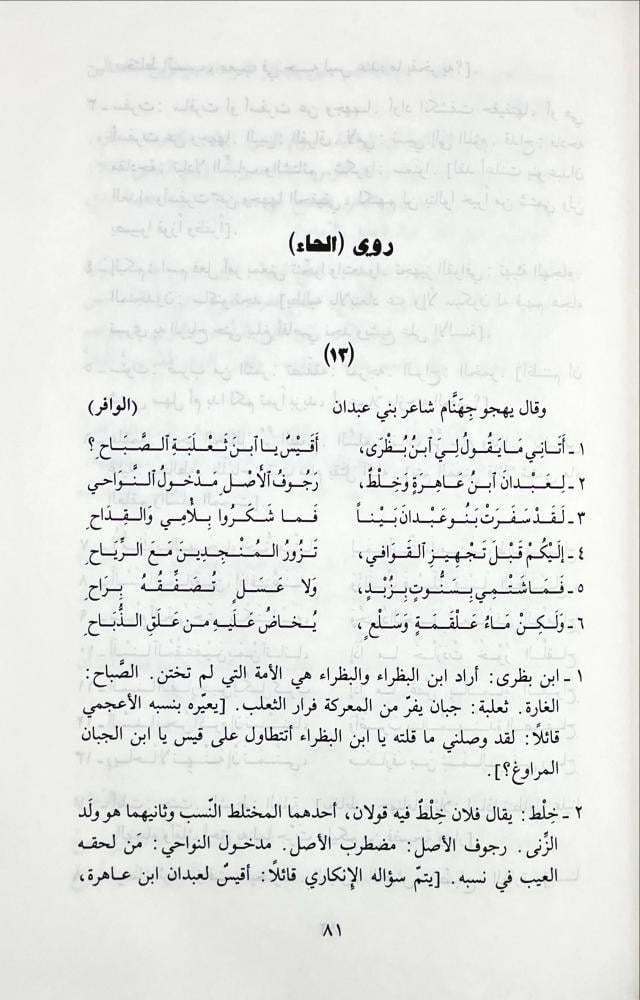 روي (الحاء)
(١٣)
وقال يهجو جِهَنَّام شاعر بني عبدان (الوافر)
١ ـ أَتَانِي مَا يَقُولُ لِيَ ٱبنُ بُظْرَى، أَقَيْسٌ يا ٱبنَ ثَعْلَبَةِ الصَّبَاحِ؟
٢ ـ لِعَبْدَانَ ٱبنُ عَاهِرَةٍ وَخِلْطٌ، رَجُوفُ الأَصْلِ مَدْخُولُ النَّوَاحي
٣ ـ لَقَدْ سَفَرَتْ بَنُو عَبْدَانَ بَيْناً فَما شَكَرُوا بِلَأْمِي وَالقِدَاحِ
٤ ـ إِلَيْكُمْ قَبْلَ تَجْهِيزِ القَوَافي، تَزُورُ المُنْجِدِينَ مَعَ الرِّيَاحِ
٥ ـ فَمَا شَتْمِي بِسَنُّوتٍ بِزُبْدٍ، وَلا عَسَلٍ تُصَفِّقُهُ بِرَاحِ
٦ ـ وَلَكِنْ مَاءُ عَلْقَمَةٍ وَسَلْعٍ، يُخَاضُ عَلَيْهِ مِن عَلَقِ الذُّبَاحِ
١ ـ ابن بظرى: أراد ابن البظراء والبظراء هي الأمة التي لم تختن. الصَّباح:
الغارة. ثعلبة: جبان يفرّ من المعركة فرار الثعلب. [يعيّره بنسبه الأعجمي
قائلًا: لقد وصلني ما قلته يا ابن البظراء أتتطاول على قيس يا ابن الجبان
المراوغ؟].
٢ ـ خِلط: يقال فلان خِلطٌ فيه قولان، أحدهما المختلط النّسب وثانيهما هو ولَد
الزّنى. رجوف الأصل: مضطرب الأصل. مدخول النواحي: مَن لحقه
العيب في نسبه. [يتمّ سؤاله الإنكاري قائلًا: أقيسٌ لعبدان ابن عاهرة،
٨١